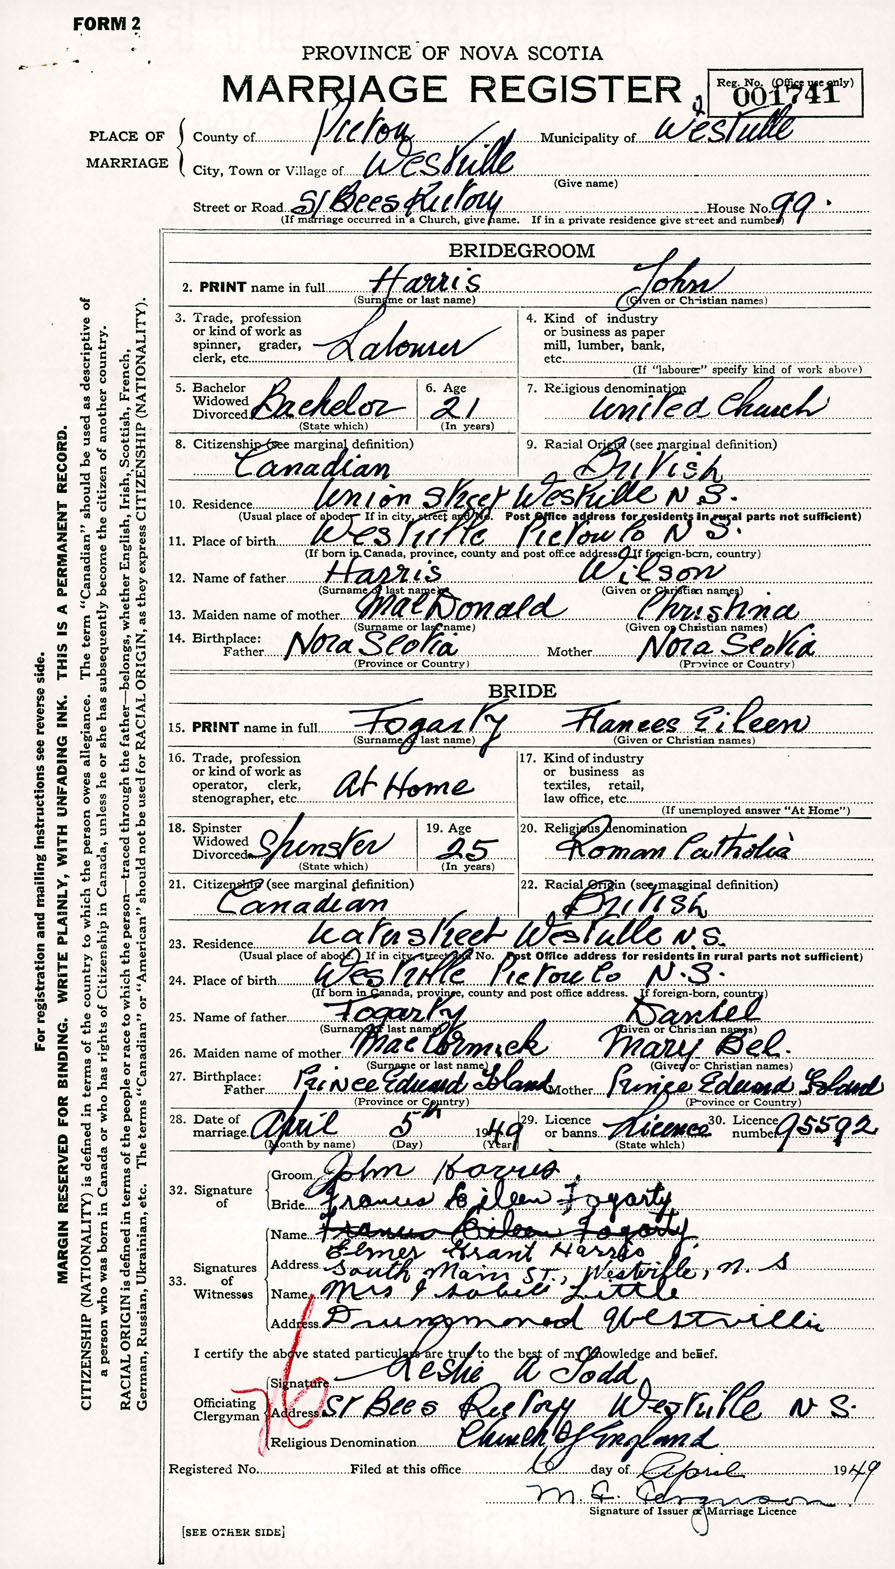 FORM 2
PROVINCE OF NOVA SCOTIA
MARRIAGE REGISTER
Reg. No. (Office use only)
001741
PLACE OF MARRIAGE
County of Pictou Municipality of Westville
City, Town or Village of Westville
(Give name)
Street or Road St Bees Rectory House No. 99.
(If marriage occurred in a Church, give name. If in a private residence give street and number)
BRIDEGROOM
2. PRINT name in full Harris John
(Surname or last name) (Given or Christian names)
3. Trade, profession or kind of work as spinner, grader, clerk, etc. Labourer
4. Kind of industry or business as paper mill, lumber, bank, etc.
(If "labourer" specify kind of work above)
5. Bachelor Widowed Divorced Bachelor
(State which)
6. Age 21
(In years)
7. Religious denomination United Church
8. Citizenship (see marginal definition) Canadian
9. Racial Origin (see marginal definition) British
10. Residence Union Street Westville N.S.
(Usual place of abode. If in city, street and No. Post Office address for residents in rural parts not sufficient)
11. Place of birth Westville Pictou Co N.S.
(If born in Canada, province, county and post office address. If foreign-born, country)
12. Name of father Harris Wilson
(Surname or last name) (Given or Christian names)
13. Maiden name of mother MacDonald Christina
(Surname or last name) (Given or Christian names)
14. Birthplace: Father Nova Scotia Mother Nova Scotia
(Province or Country) (Province or Country)
BRIDE
15. PRINT name in full Fogarty Frances Eileen
(Surname or last name) (Given or Christian names)
16. Trade, profession or kind of work as operator, clerk, stenographer, etc. At Home
17. Kind of industry or business as textiles, retail, law office, etc.
(If unemployed answer "At Home")
18. Spinster Widowed Divorced Spinster
(State which)
19. Age 25
(In years)
20. Religious denomination Roman Catholic
21. Citizenship (see marginal definition) Canadian
22. Racial Origin (see marginal definition) British
23. Residence Water Street Westville N.S.
(Usual place of abode. If in city, street and No. Post Office address for residents in rural parts not sufficient)
24. Place of birth Westville Pictou Co N.S.
(If born in Canada, province, county and post office address. If foreign-born, country)
25. Name of father Fogarty Daniel
(Surname or last name) (Given or Christian names)
26. Maiden name of mother MacCormick Mary Bel.
(Surname or last name) (Given or Christian names)
27. Birthplace: Father Prince Edward Island Mother Prince Edward Island
(Province or Country) (Province or Country)
28. Date of marriage April 5th 1949 29. Licence or banns Licence 30. Licence number 95592
(Month by name) (Day) (Year) (State which)
32. Signature of
Groom John Harris
Bride Frances Eileen Fogarty
33. Signatures of Witnesses
Name Frances Eileen Fogarty
Elmer Grant Harris
Address South Main St., Westville, N.S
Name Mrs Isobell Little
Address Drummond Westville
I certify the above stated particulars are true to the best of my knowledge and belief.
Officiating Clergyman
Signature Leslie A Todd
Address St Bees Rectory Westville N S.
Religious Denomination Church of England
76
Registered No. Filed at this office 6 day of April 1949
M. F. Ferguson
Signature of Issuer of Marriage Licence
[SEE OTHER SIDE]
For registration and mailing instructions see reverse side.
MARGIN RESERVED FOR BINDING. WRITE PLAINLY, WITH UNFADING INK. THIS IS A PERMANENT RECORD.
CITIZENSHIP (NATIONALITY) is defined in terms of the country to which the person owes allegiance. The term "Canadian" should be used as descriptive of
a person who was born in Canada or who has rights of Citizenship in Canada, unless he or she has subsequently become the citizen of another country.
RACIAL ORIGIN is defined in terms of the people or race to which the person—traced through the father—belongs, whether English, Irish, Scottish, French,
German, Russian, Ukrainian, etc. The terms "Canadian" or "American" should not be used for RACIAL ORIGIN, as they express CITIZENSHIP (NATIONALITY).